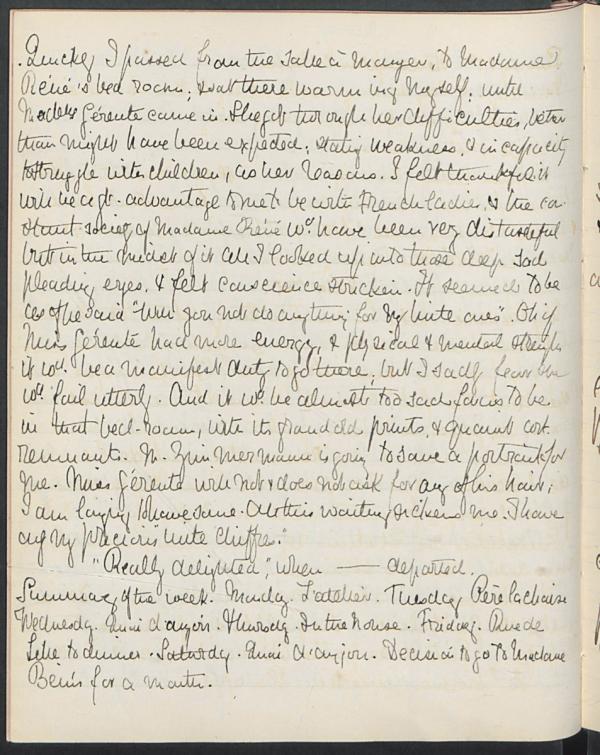 Quickly I passed from the Salle à Manger, to Madame
Réné's bed room, & sat there warming myself, until
Madame Gérente came in. She got through her difficulties, better
than might have been expected, stating weakness, & incapacity
to struggle with children, as her reasons. I felt thankful it
will be a gt. advantage to me to be with French ladies, & the con
stant society of Madame Réné wd. have been very distasteful
but in the midst of it all I looked up into those deep sad
pleading eyes, & felt conscience stricken. It seemed to be
as if he said "Will you not do anything for my little ones". Oh if
Miss Gérente had more energy, & physical & mental strength
it wd. be a manifest duty to go there, but I sadly fear she
wd. fail utterly. And it wd. be almost too sad for us to be
in that bed-room, with its grand old prints, & quaint
remnants. M. Zimmermann is going to save a portrait for
me. Miss Gérente will not & does not ask for any of his hair,
I am longing to have some. All this waiting sickens me. I have
my precious little chiffre."
"Really delighted", when —— departed.
Summary of the week. Monday. L'atelier. Tuesday Père Lachaise
Wednesday. Quai d'anjou. Thursday. In the house. Friday. Rue de
Lille to dinner. Saturday. Quai d'anjou. Decision to go to Madame
for a month.